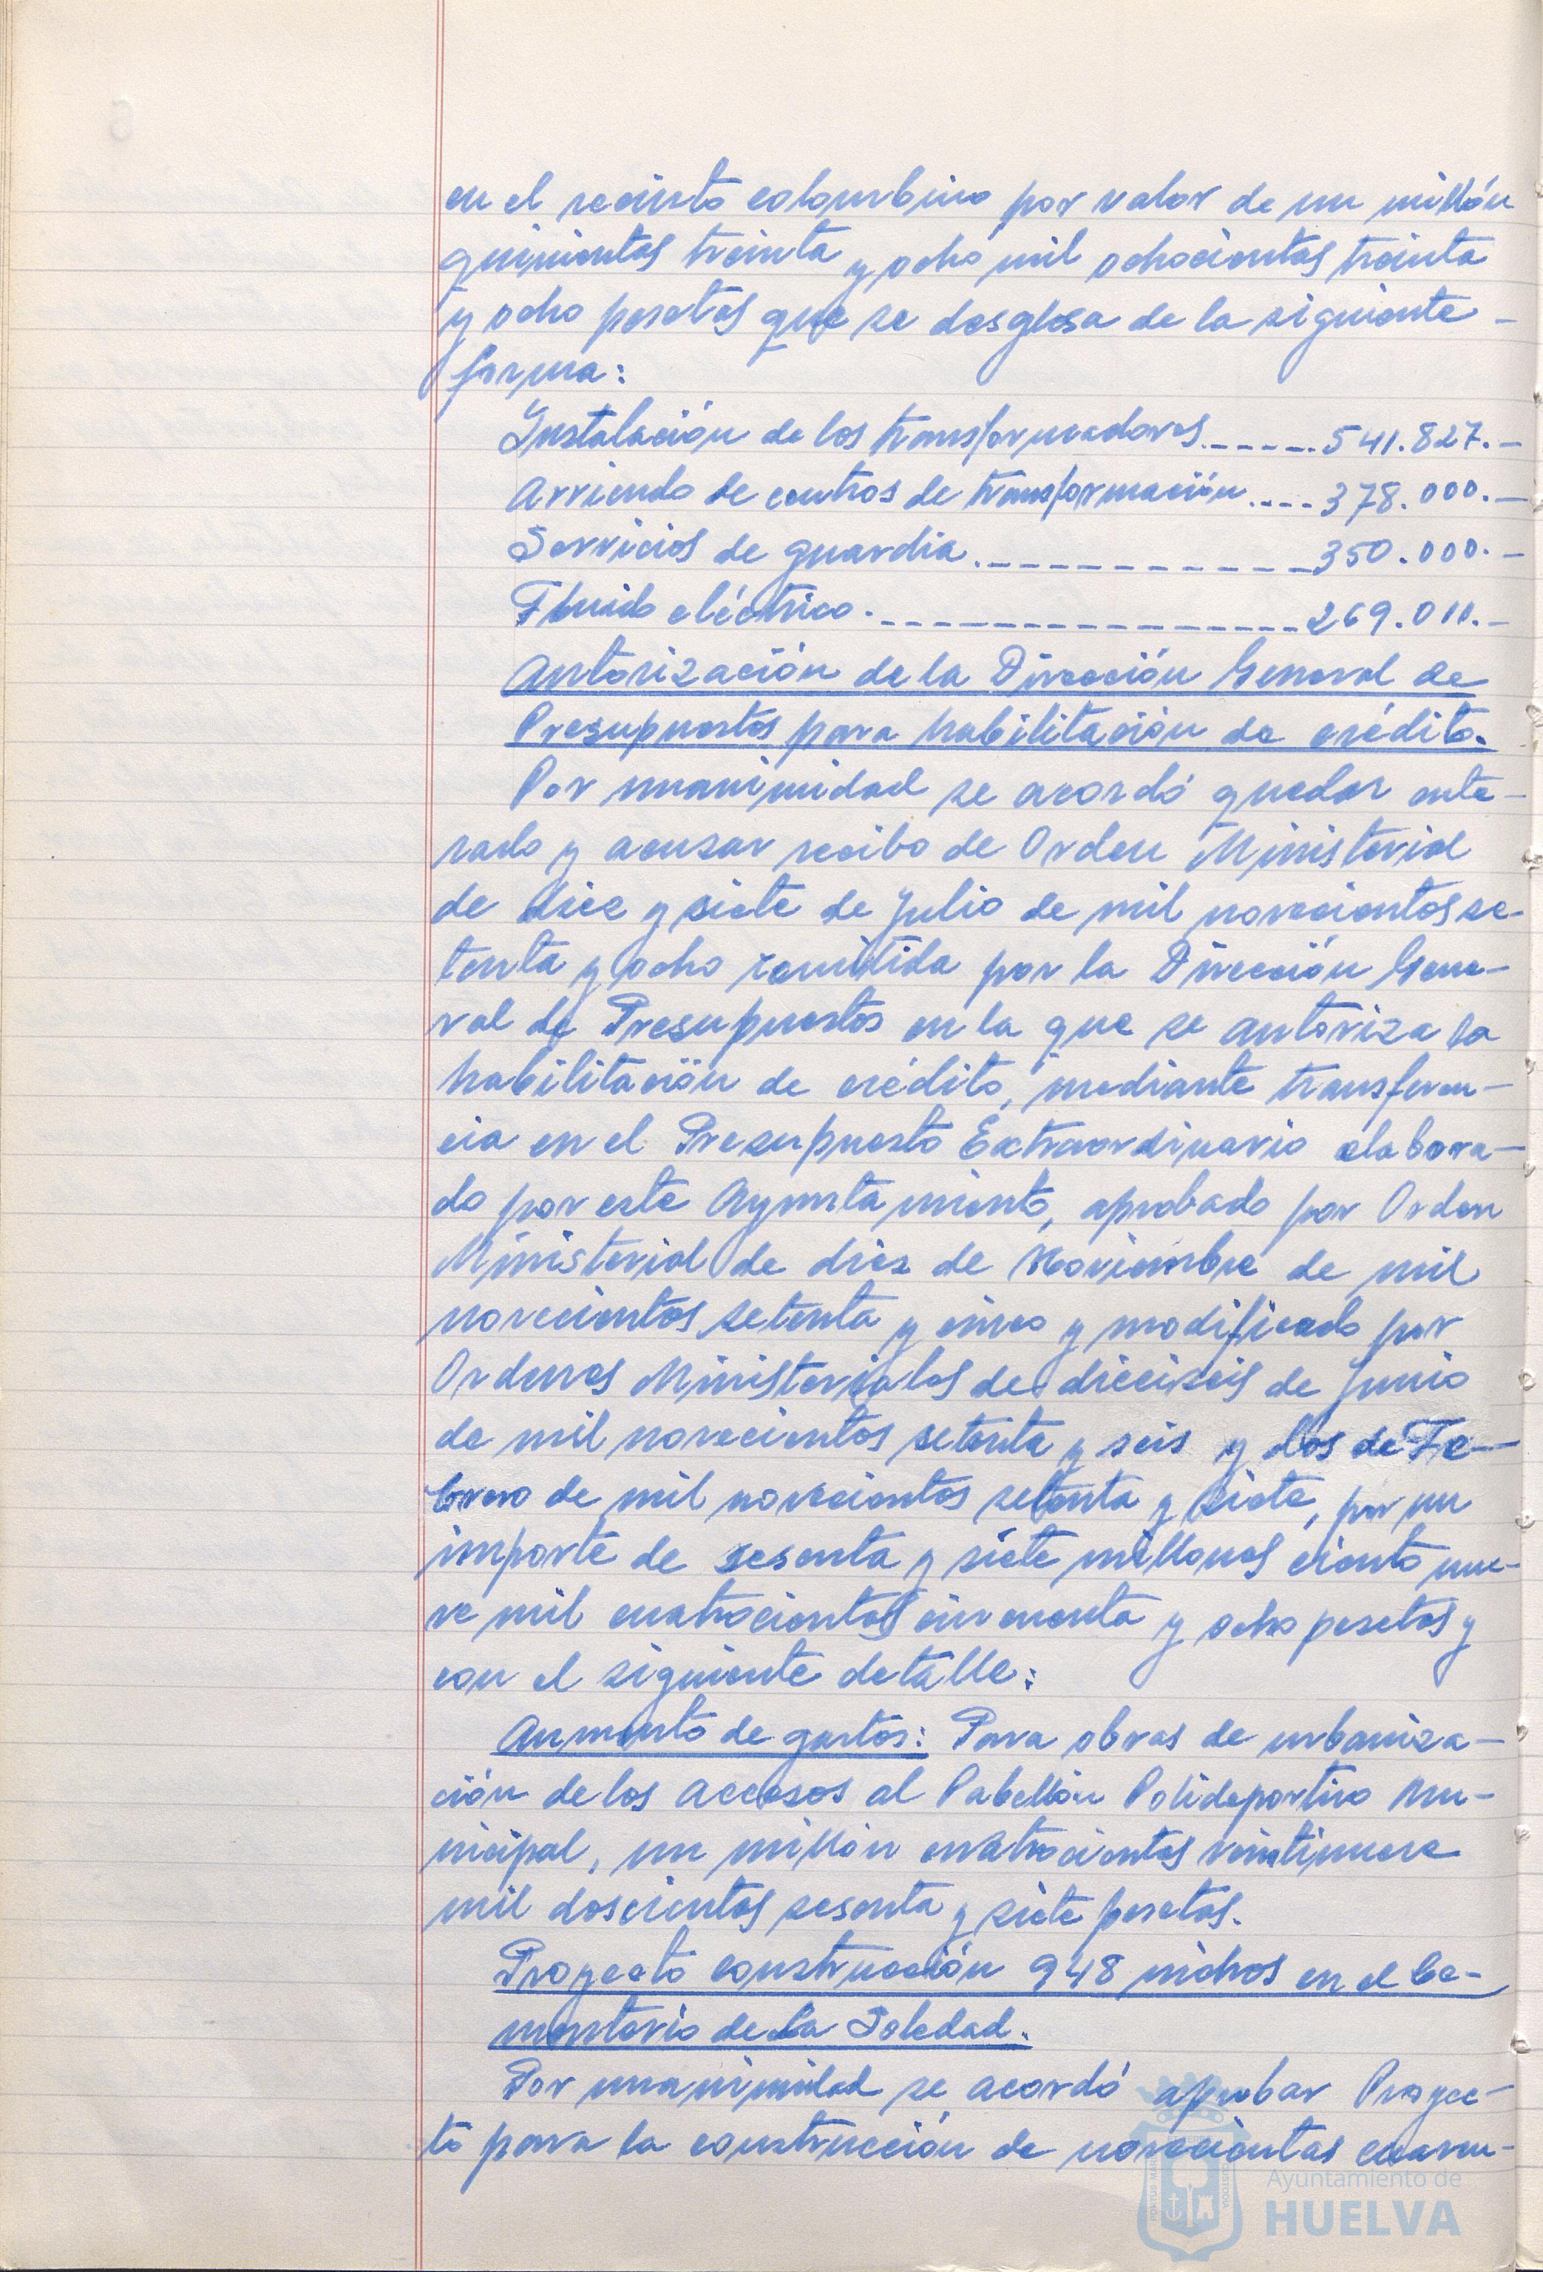 en el recinto colombino por valor de un millón
quinientas treinta y ocho mil ochocientas treinta
y ocho pesetas que se desglosa de la siguiente -
forma:
Instalación de los transformadores.-----.541.827.-
Arriendo de centros de transformación....--378.000.-
Servicios de guardia.------------350.000.-
Fluido eléctrico.----------------269.011.-
Autorización de la Dirección General de
Presupuestos para habilitación de crédito.
Por unanimidad se acordó quedar ente-
rado y acusar recibo de Orden Ministerial
de diez y siete de Julio de mil novecientos se-
tenta y ocho remitida por la Dirección Gene-
ral de Presupuestos en la que se autoriza la
habilitación de crédito, mediante transferen-
cia en el Presupuesto Extraordinario elabora-
do por este Ayuntamiento, aprobado por Orden
Ministerial de diez de Noviembre de mil
novecientos setenta y cinco y modificado por
Ordenes Ministeriales de dieciseis de Junio
de mil novecientos setenta y seis y dos de Fe-
brero de mil novecientos setenta y siete, por un
importe de sesenta y siete millones ciento nue-
ve mil cuatrocientas cincuenta y ocho pesetas y
con el siguiente detalle:
Aumento de gastos: Para obras de urbaniza-
ción de los accesos al Pabellón Polideportivo Mu-
nicipal, un millón cuatrocientas veintinueve
mil doscientas sesenta y siete pesetas.
Proyecto construcción 948 nichos en el Ce-
menterio de La Soledad.
Por unanimidad se acordó aprobar Proyec-
to para la construcción de novecientas cuaren-
Ayuntamiento de
HUELVA